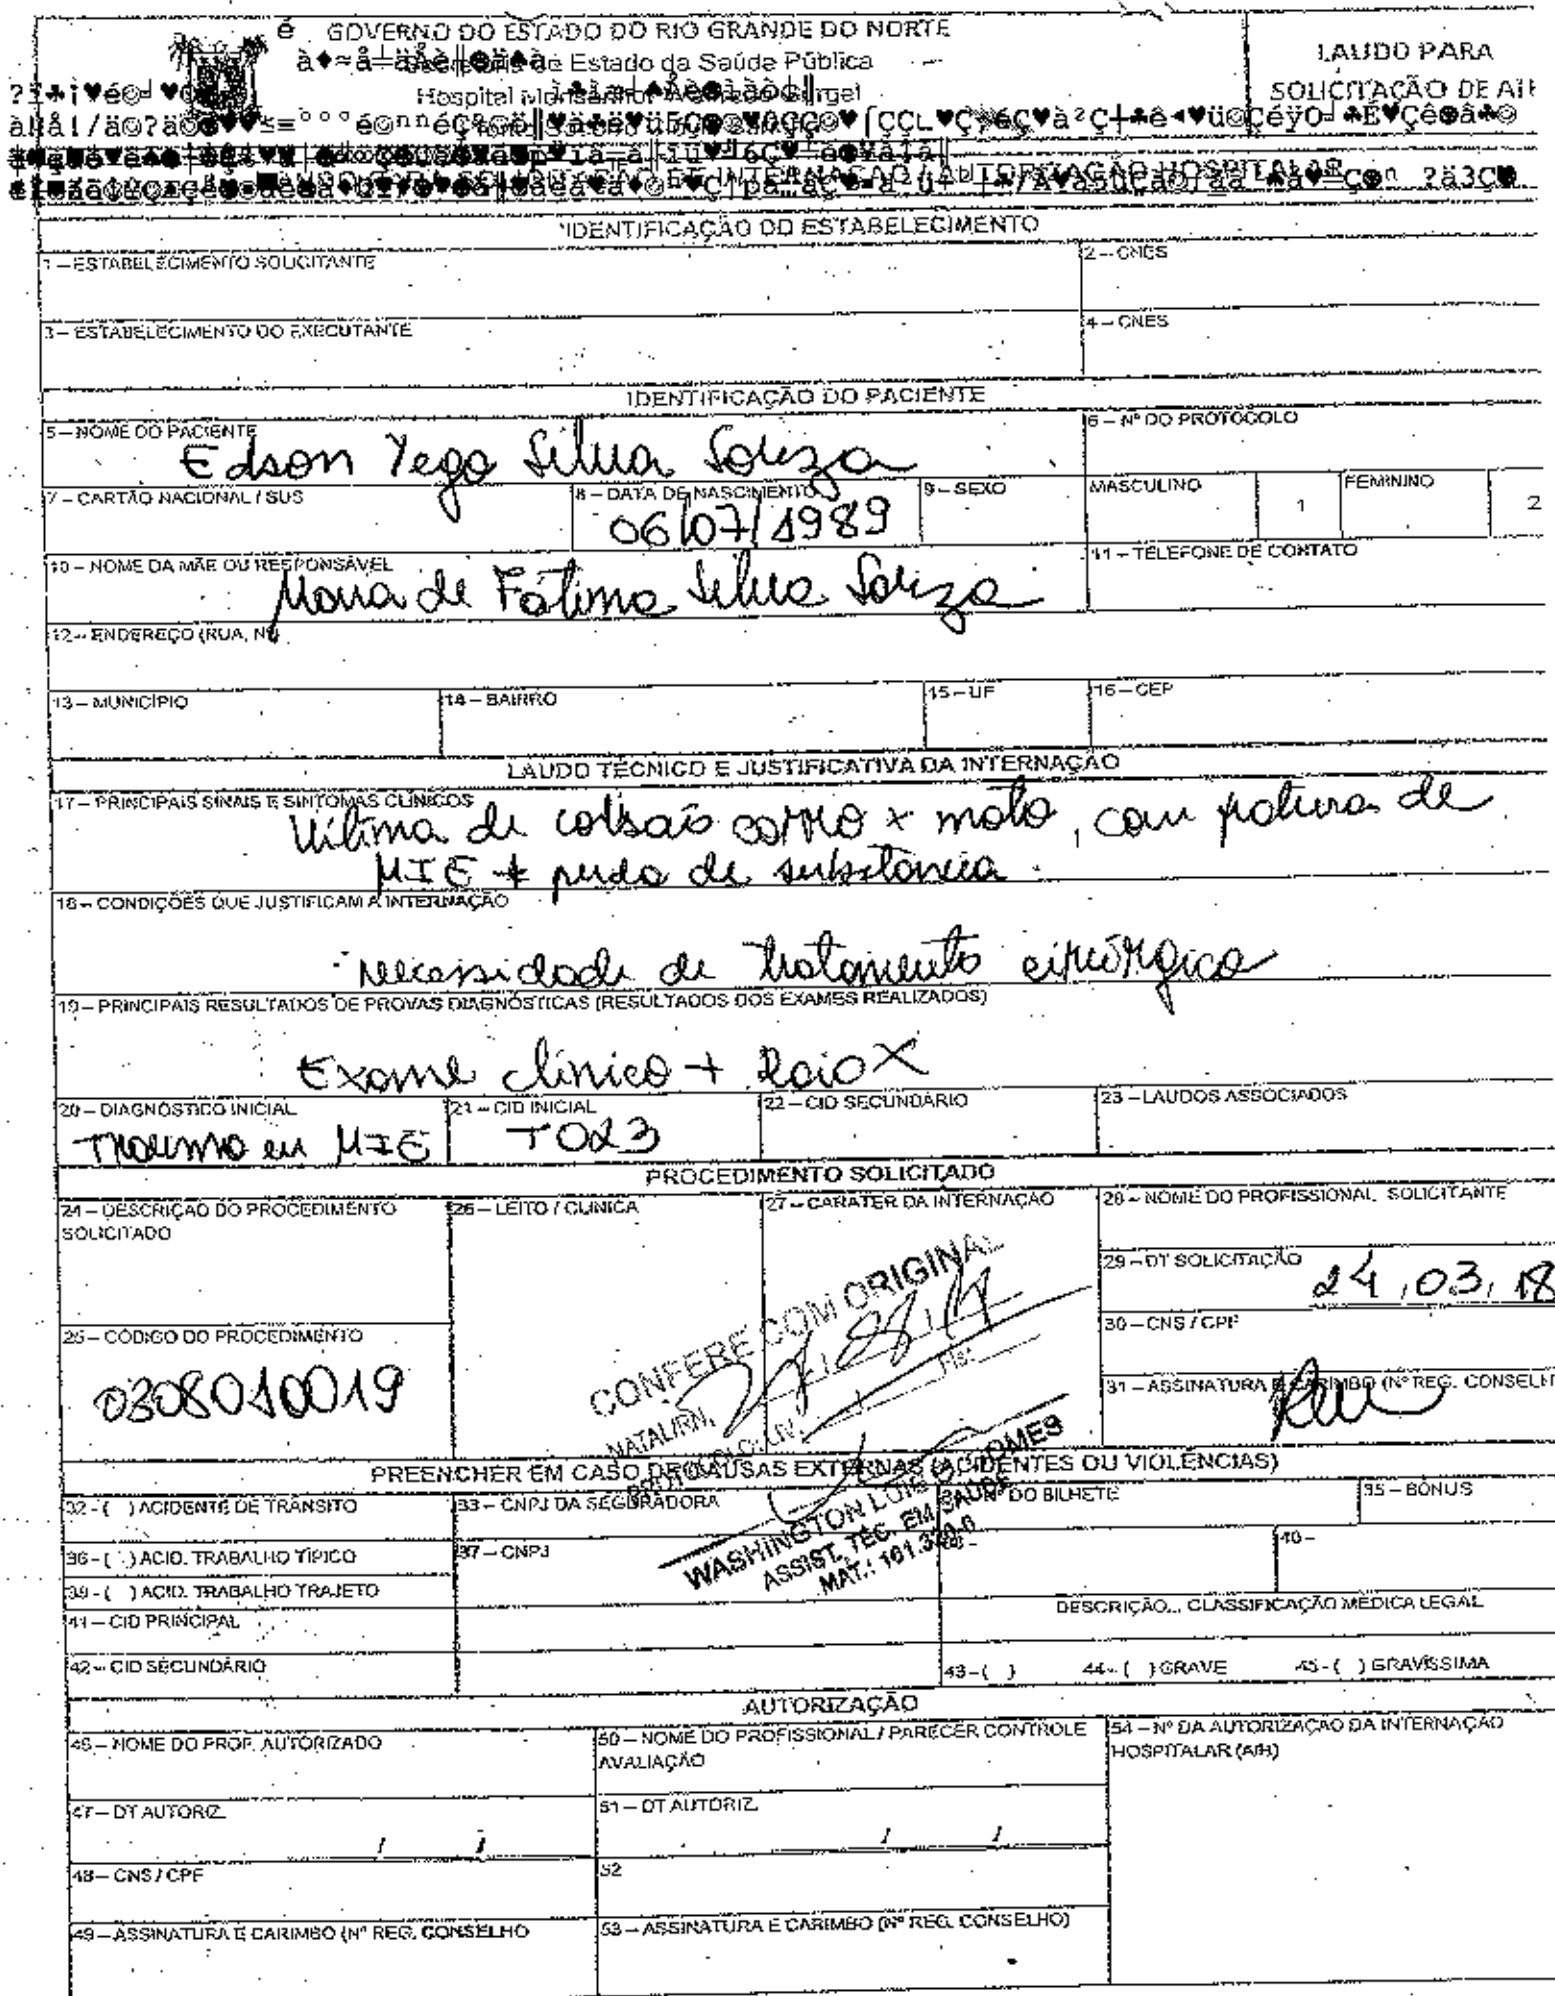 GOVERNO DO ESTADO DO RIO GRANDE DO NORTE
de Estado da Saúde Pública
Hospital
LAUDO PARA
SOLICITAÇÃO DE AIH
INTERNAÇÃO / AUTORIZAÇÃO HOSPITALAR
IDENTIFICAÇÃO DO ESTABELECIMENTO
1 – ESTABELECIMENTO SOLICITANTE
2 – CNES
3 – ESTABELECIMENTO DO EXECUTANTE
4 – CNES
IDENTIFICAÇÃO DO PACIENTE
5 – NOME DO PACIENTE
6 – Nº DO PROTOCOLO
Edson Yego Silva Souza
7 – CARTÃO NACIONAL / SUS
8 – DATA DE NASCIMENTO
9 – SEXO
MASCULINO
1
FEMININO
2
06/07/1989
10 – NOME DA MÃE OU RESPONSÁVEL
11 – TELEFONE DE CONTATO
Maria de Fátima Silva Souza
12 – ENDEREÇO (RUA, Nº)
13 – MUNICÍPIO
14 – BAIRRO
15 – UF
16 – CEP
LAUDO TÉCNICO E JUSTIFICATIVA DA INTERNAÇÃO
17 – PRINCIPAIS SINAIS E SINTOMAS CLÍNICOS
Vítima de colisão carro x moto, com fratura de
MIE + perda de substância
18 – CONDIÇÕES QUE JUSTIFICAM A INTERNAÇÃO
necessidade de tratamento cirúrgico
19 – PRINCIPAIS RESULTADOS DE PROVAS DIAGNÓSTICAS (RESULTADOS DOS EXAMES REALIZADOS)
Exame clínico + Raio X
20 – DIAGNÓSTICO INICIAL
21 – CID INICIAL
22 – CID SECUNDÁRIO
23 – LAUDOS ASSOCIADOS
Trauma em MIE
T023
PROCEDIMENTO SOLICITADO
24 – DESCRIÇÃO DO PROCEDIMENTO
SOLICITADO
26 – LEITO / CLINICA
27 – CARATER DA INTERNAÇÃO
28 – NOME DO PROFISSIONAL SOLICITANTE
29 – DT SOLICITAÇÃO
24, 03, 18
CONFERE COM ORIGINAL
NATAL/RN,
25 – CÓDIGO DO PROCEDIMENTO
0308010019
30 – CNS / CPF
31 – ASSINATURA E CARIMBO (Nº REG. CONSELH
PREENCHER EM CASO DE CAUSAS EXTERNAS (ACIDENTES OU VIOLÊNCIAS)
32 - ( ) ACIDENTE DE TRÂNSITO
33 – CNPJ DA SEGURADORA
Nº DO BILHETE
35 – BÔNUS
WASHINGTON LUIS GOMES
ASSIST. TÉC. EM SAÚDE
MAT.: 161.3
36 - ( ) ACID. TRABALHO TÍPICO
37 – CNPJ
40 –
39 - ( ) ACID. TRABALHO TRAJETO
41 – CID PRINCIPAL
DESCRIÇÃO... CLASSIFICAÇÃO MÉDICA LEGAL
42 – CID SECUNDÁRIO
43 – ( )
44 – ( ) GRAVE
45 - ( ) GRAVÍSSIMA
AUTORIZAÇÃO
46 – NOME DO PROF. AUTORIZADO
50 – NOME DO PROFISSIONAL / PARECER CONTROLE
AVALIAÇÃO
54 – Nº DA AUTORIZAÇÃO DA INTERNAÇÃO
HOSPITALAR (AIH)
47 – DT AUTORIZ.
51 – DT AUTORIZ.
/ /
/ /
48 – CNS / CPF
52
49 – ASSINATURA E CARIMBO (Nº REG. CONSELHO
53 – ASSINATURA E CARIMBO (Nº REG. CONSELHO)